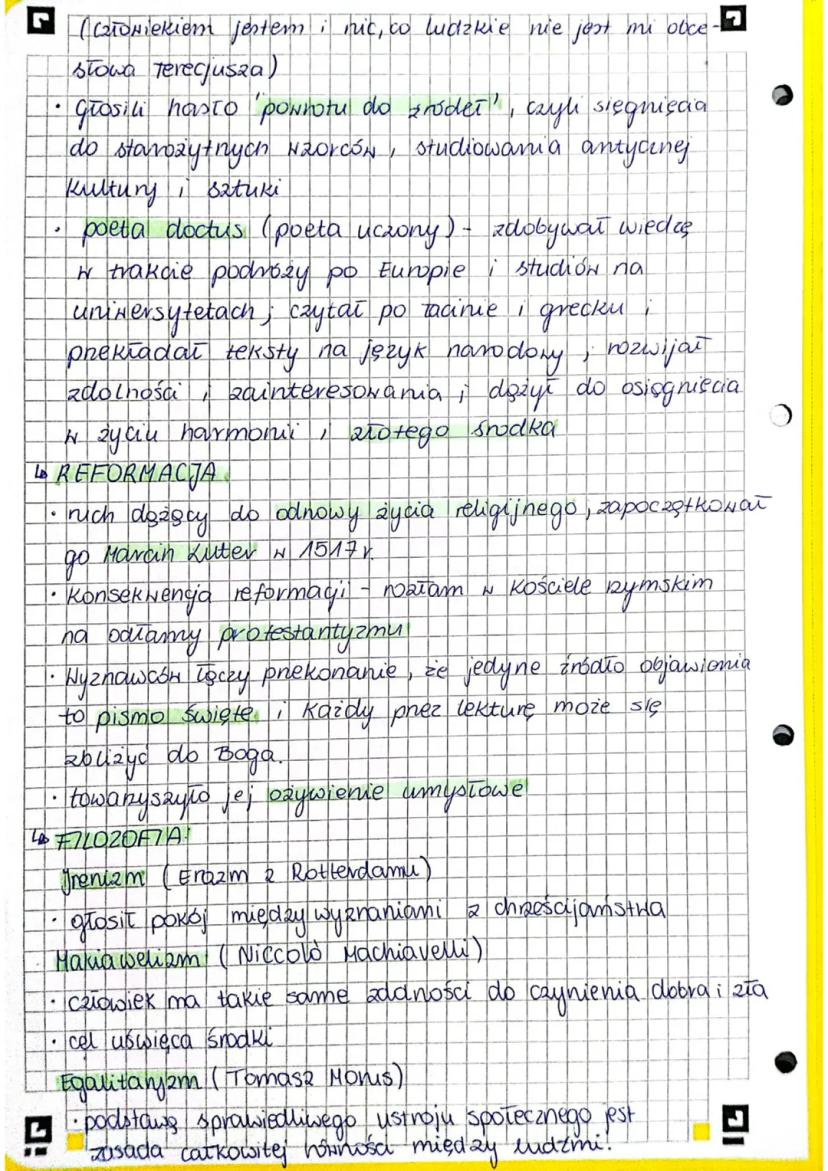 (człowiekiem jestem i nic, co ludzkie nie jest mi obce-
słowa Terecjusza)
• głosili hasło "powrotu do źródeł", czyli sięgnięcia
do starożytnych wzorców, studiowania antycznej
kultury i sztuki
• poeta doctus (poeta uczony) - zdobywał wiedzę
w trakcie podróży po Europie i studiów na
uniwersytetach; czytał po łacinie i grecku;
przekładał teksty na język narodowy; rozwijał
zdolności i zainteresowania; dążył do osiągnięcia
w życiu harmonii i złotego środka
↳ REFORMACJA
• ruch dążący do odnowy życia religijnego; zapoczątkował
go Marcin Luter w 1517r.
• Konsekwencja reformacji - rozłam w Kościele rzymskim
na odłamy protestantyzmu
• Wyznawców łączy przekonanie, że jedyne źródło objawienia
to pismo święte i każdy przez lekturę może się
zbliżyć do Boga.
• towarzyszyło jej ożywienie umysłowe
↳ FILOZOFIA:
Irenizm (Erazm z Rotterdamu)
• głosił pokój między wyznaniami z chrześcijaństwa
Makiawelizm (Niccolò Machiavelli)
• człowiek ma takie same zdolności do czynienia dobra i zła
• cel uświęca środki
Egalitaryzm (Tomasz Morus)
• podstawą sprawiedliwego ustroju społecznego jest
zasada całkowitej równości między ludźmi!